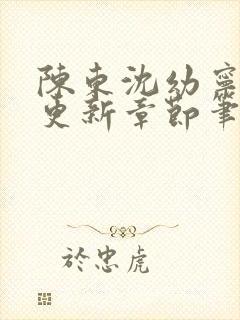 陳東沈幼寧
更新章節筆
於忠虎